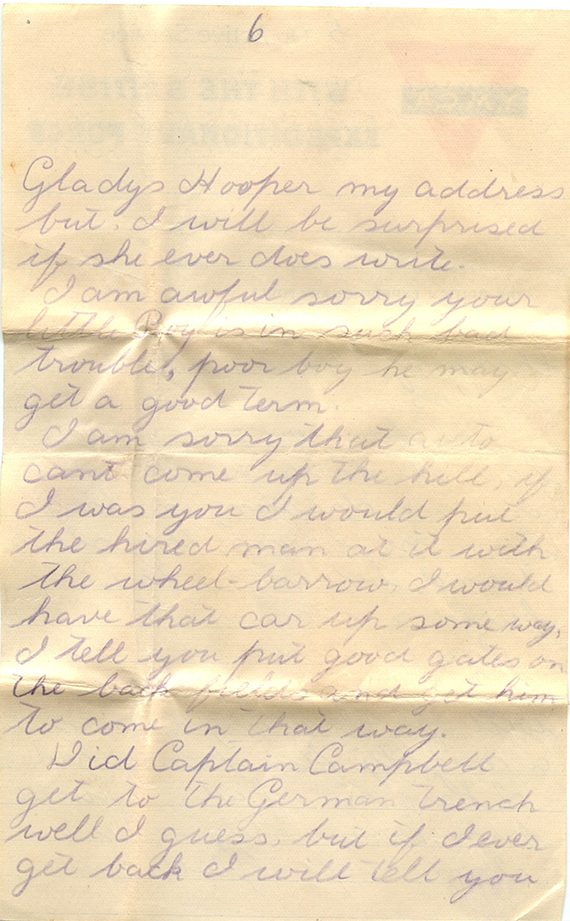 6
Gladys Hooper my address
but. I will be surprised
if she ever does write.
I am awful sorry your
little Boy is in such bad
trouble, poor boy he may
get a good term.
I am sorry that auto
cant come up the hill, if
I was you I would put
the hired man at it with
the wheel-barrow, I would
have that car up some way,
I tell you put good gates on
the back fields and get him
to come in that way.
Did Captain Campbell
get to the German trench
well I guess, but if I ever
get back I will tell you